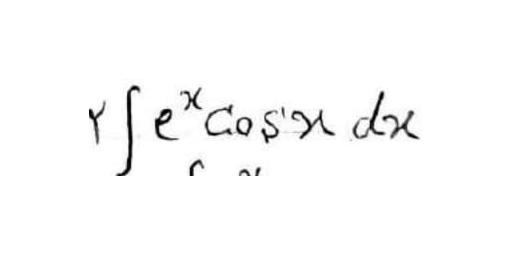 ∫ e^x cos x dx